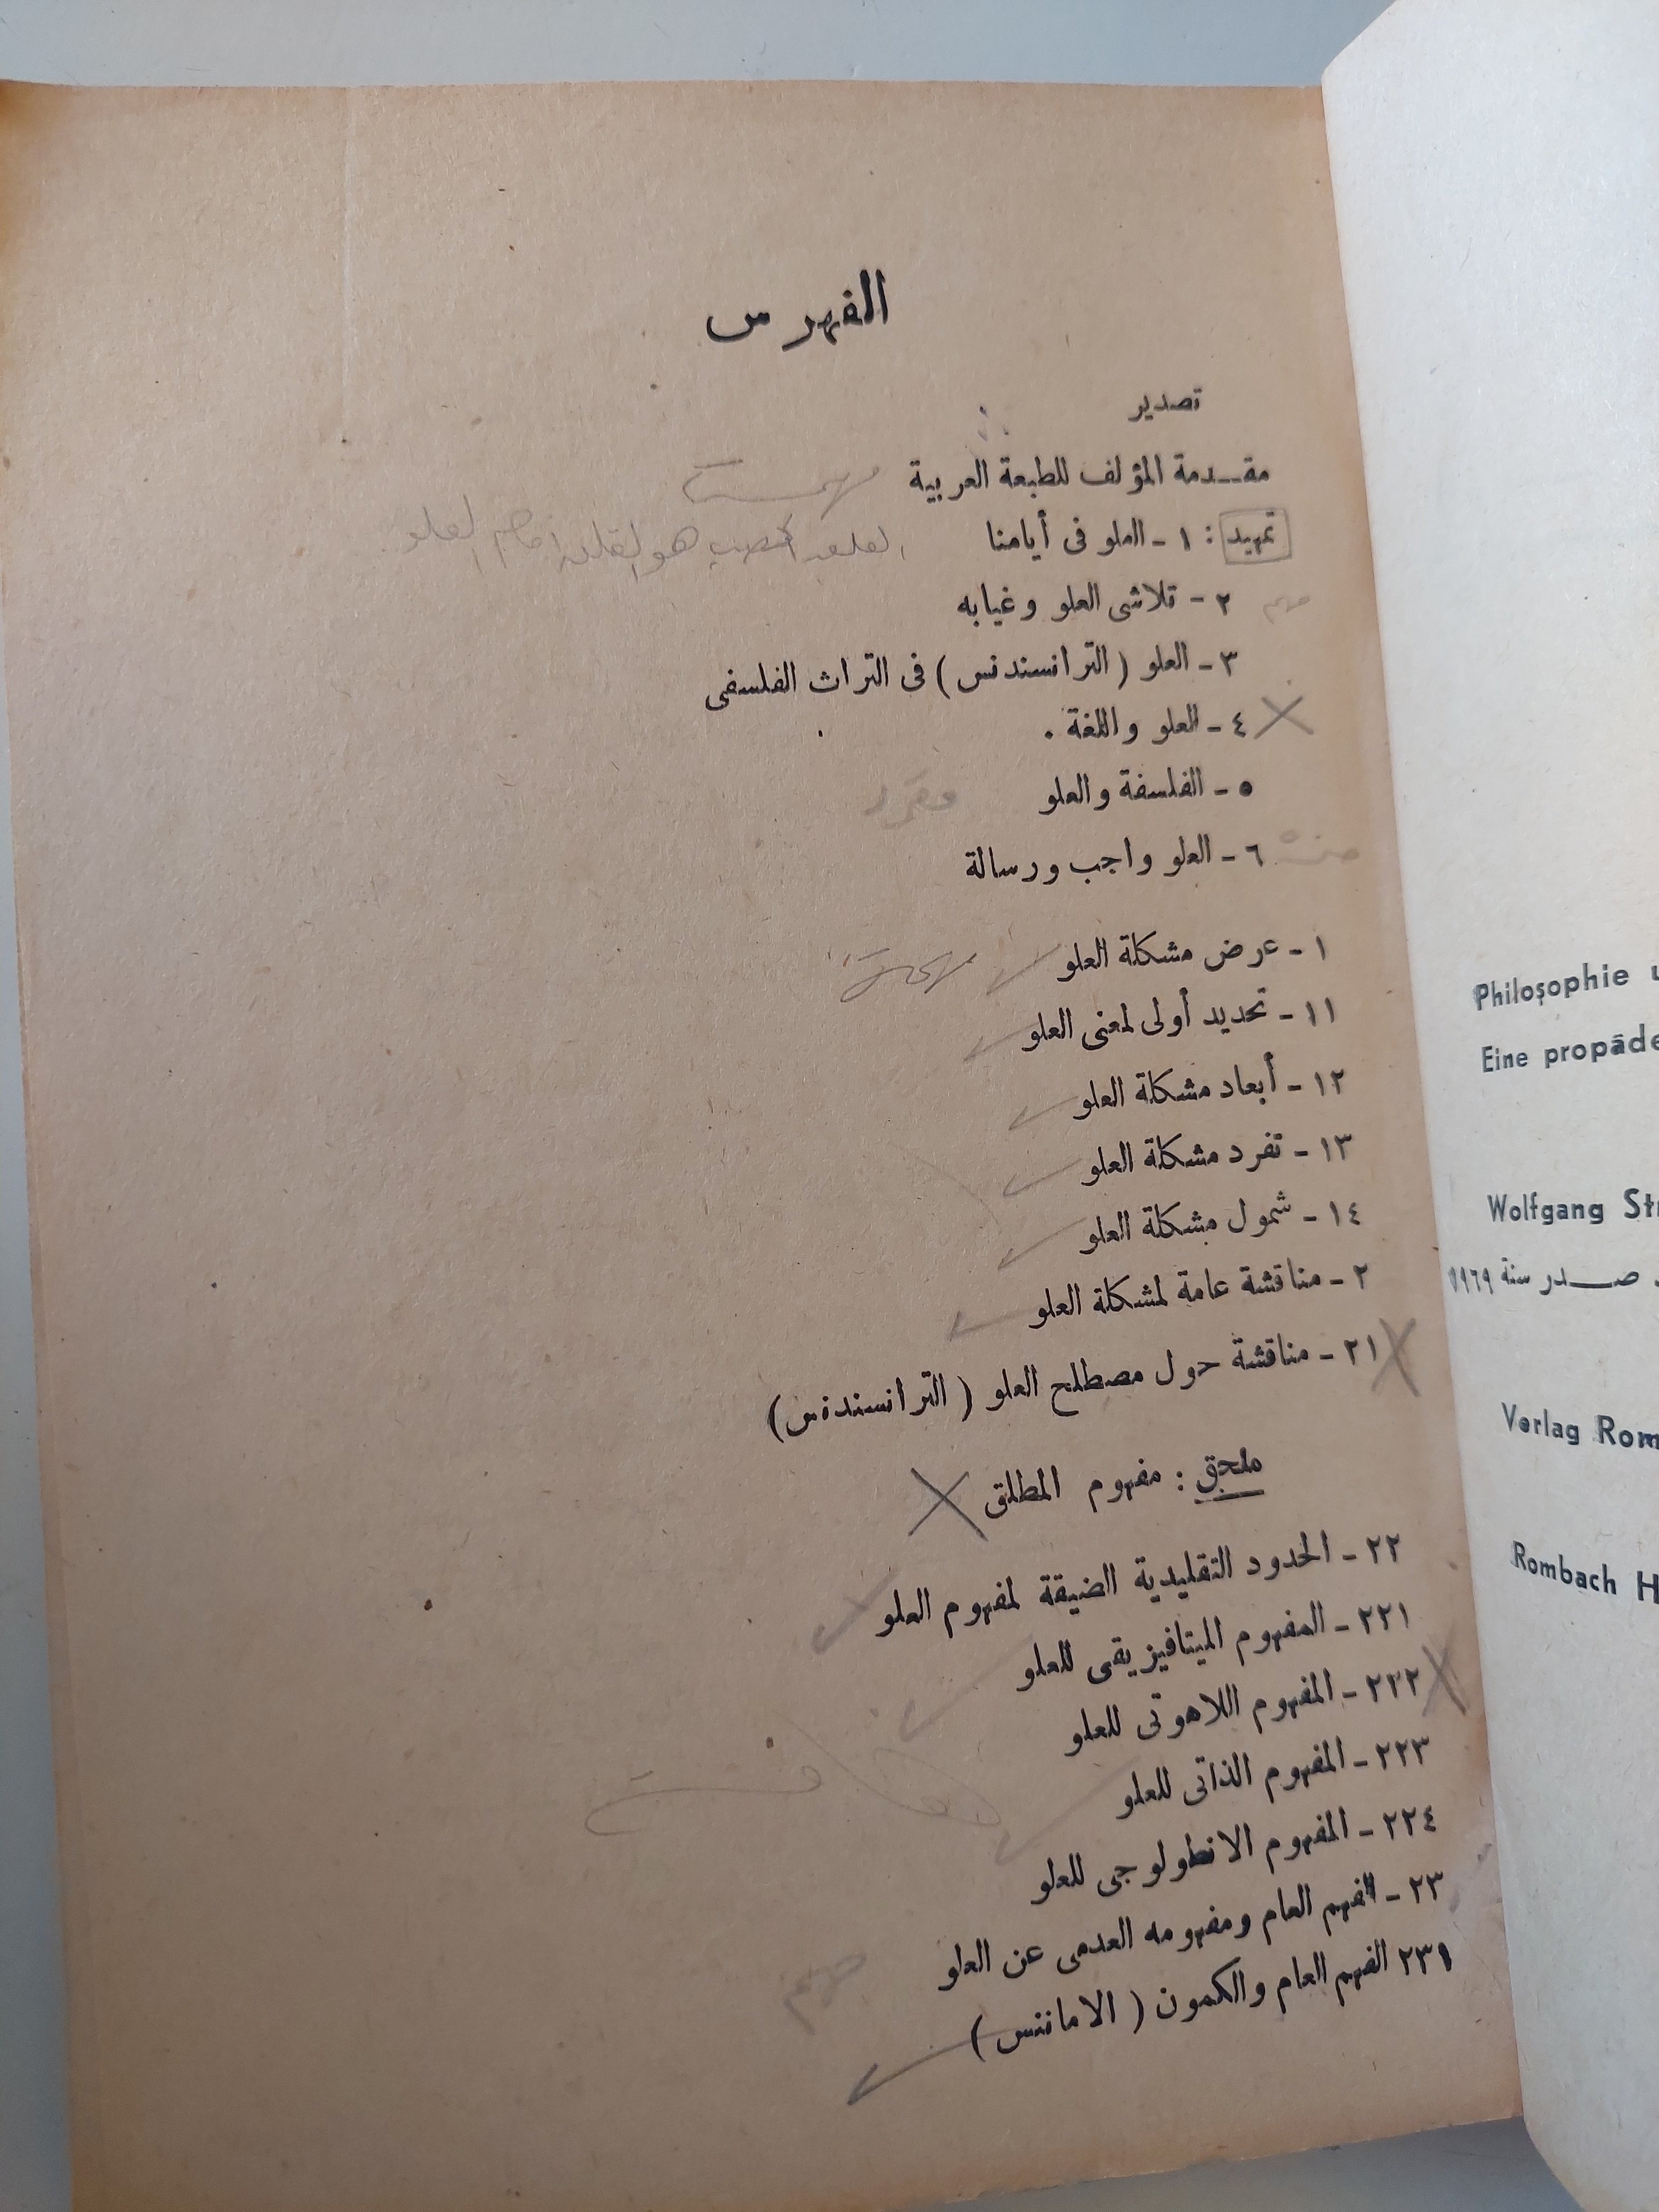 الفهرس
تصدير
مقدمة المؤلف للطبعة العربية
تمهيد : ١ - العلو فى أيامنا
مهم ٢ - تلاشى العلو وغيابه
٣ - العلو ( الترانسندنس ) فى التراث الفلسفى
٤ - العلو واللغة .
٥ - الفلسفة والعلو مقرر
٦ - العلو واجب ورسالة
١ - عرض مشكلة العلو
١١ - تحديد أولى لمعنى العلو
١٢ - أبعاد مشكلة العلو
١٣ - تفرد مشكلة العلو
١٤ - شمول مشكلة العلو
٢ - مناقشة عامة لمشكلة العلو
٢١ - مناقشة حول مصطلح العلو ( الترانسندنس )
ملحق : مفهوم المطلق
٢٢ - الحدود التقليدية الضيقة لمفهوم العلو
٢٢١ - المفهوم الميتافيزيقى للعلو
٢٢٢ - المفهوم اللاهوتى للعلو
٢٢٣ - المفهوم الذاتى للعلو
٢٢٤ - المفهوم الانطولوجى للعلو
٢٣ - الفهم العام ومفهومه العدمى عن العلو
٢٣١ الفهم العام والكمون ( الامانتس )
مهم
Philosophie
Eine
Wolfgang
صدر سنة ١٩٦٩
Verlag
Rombach